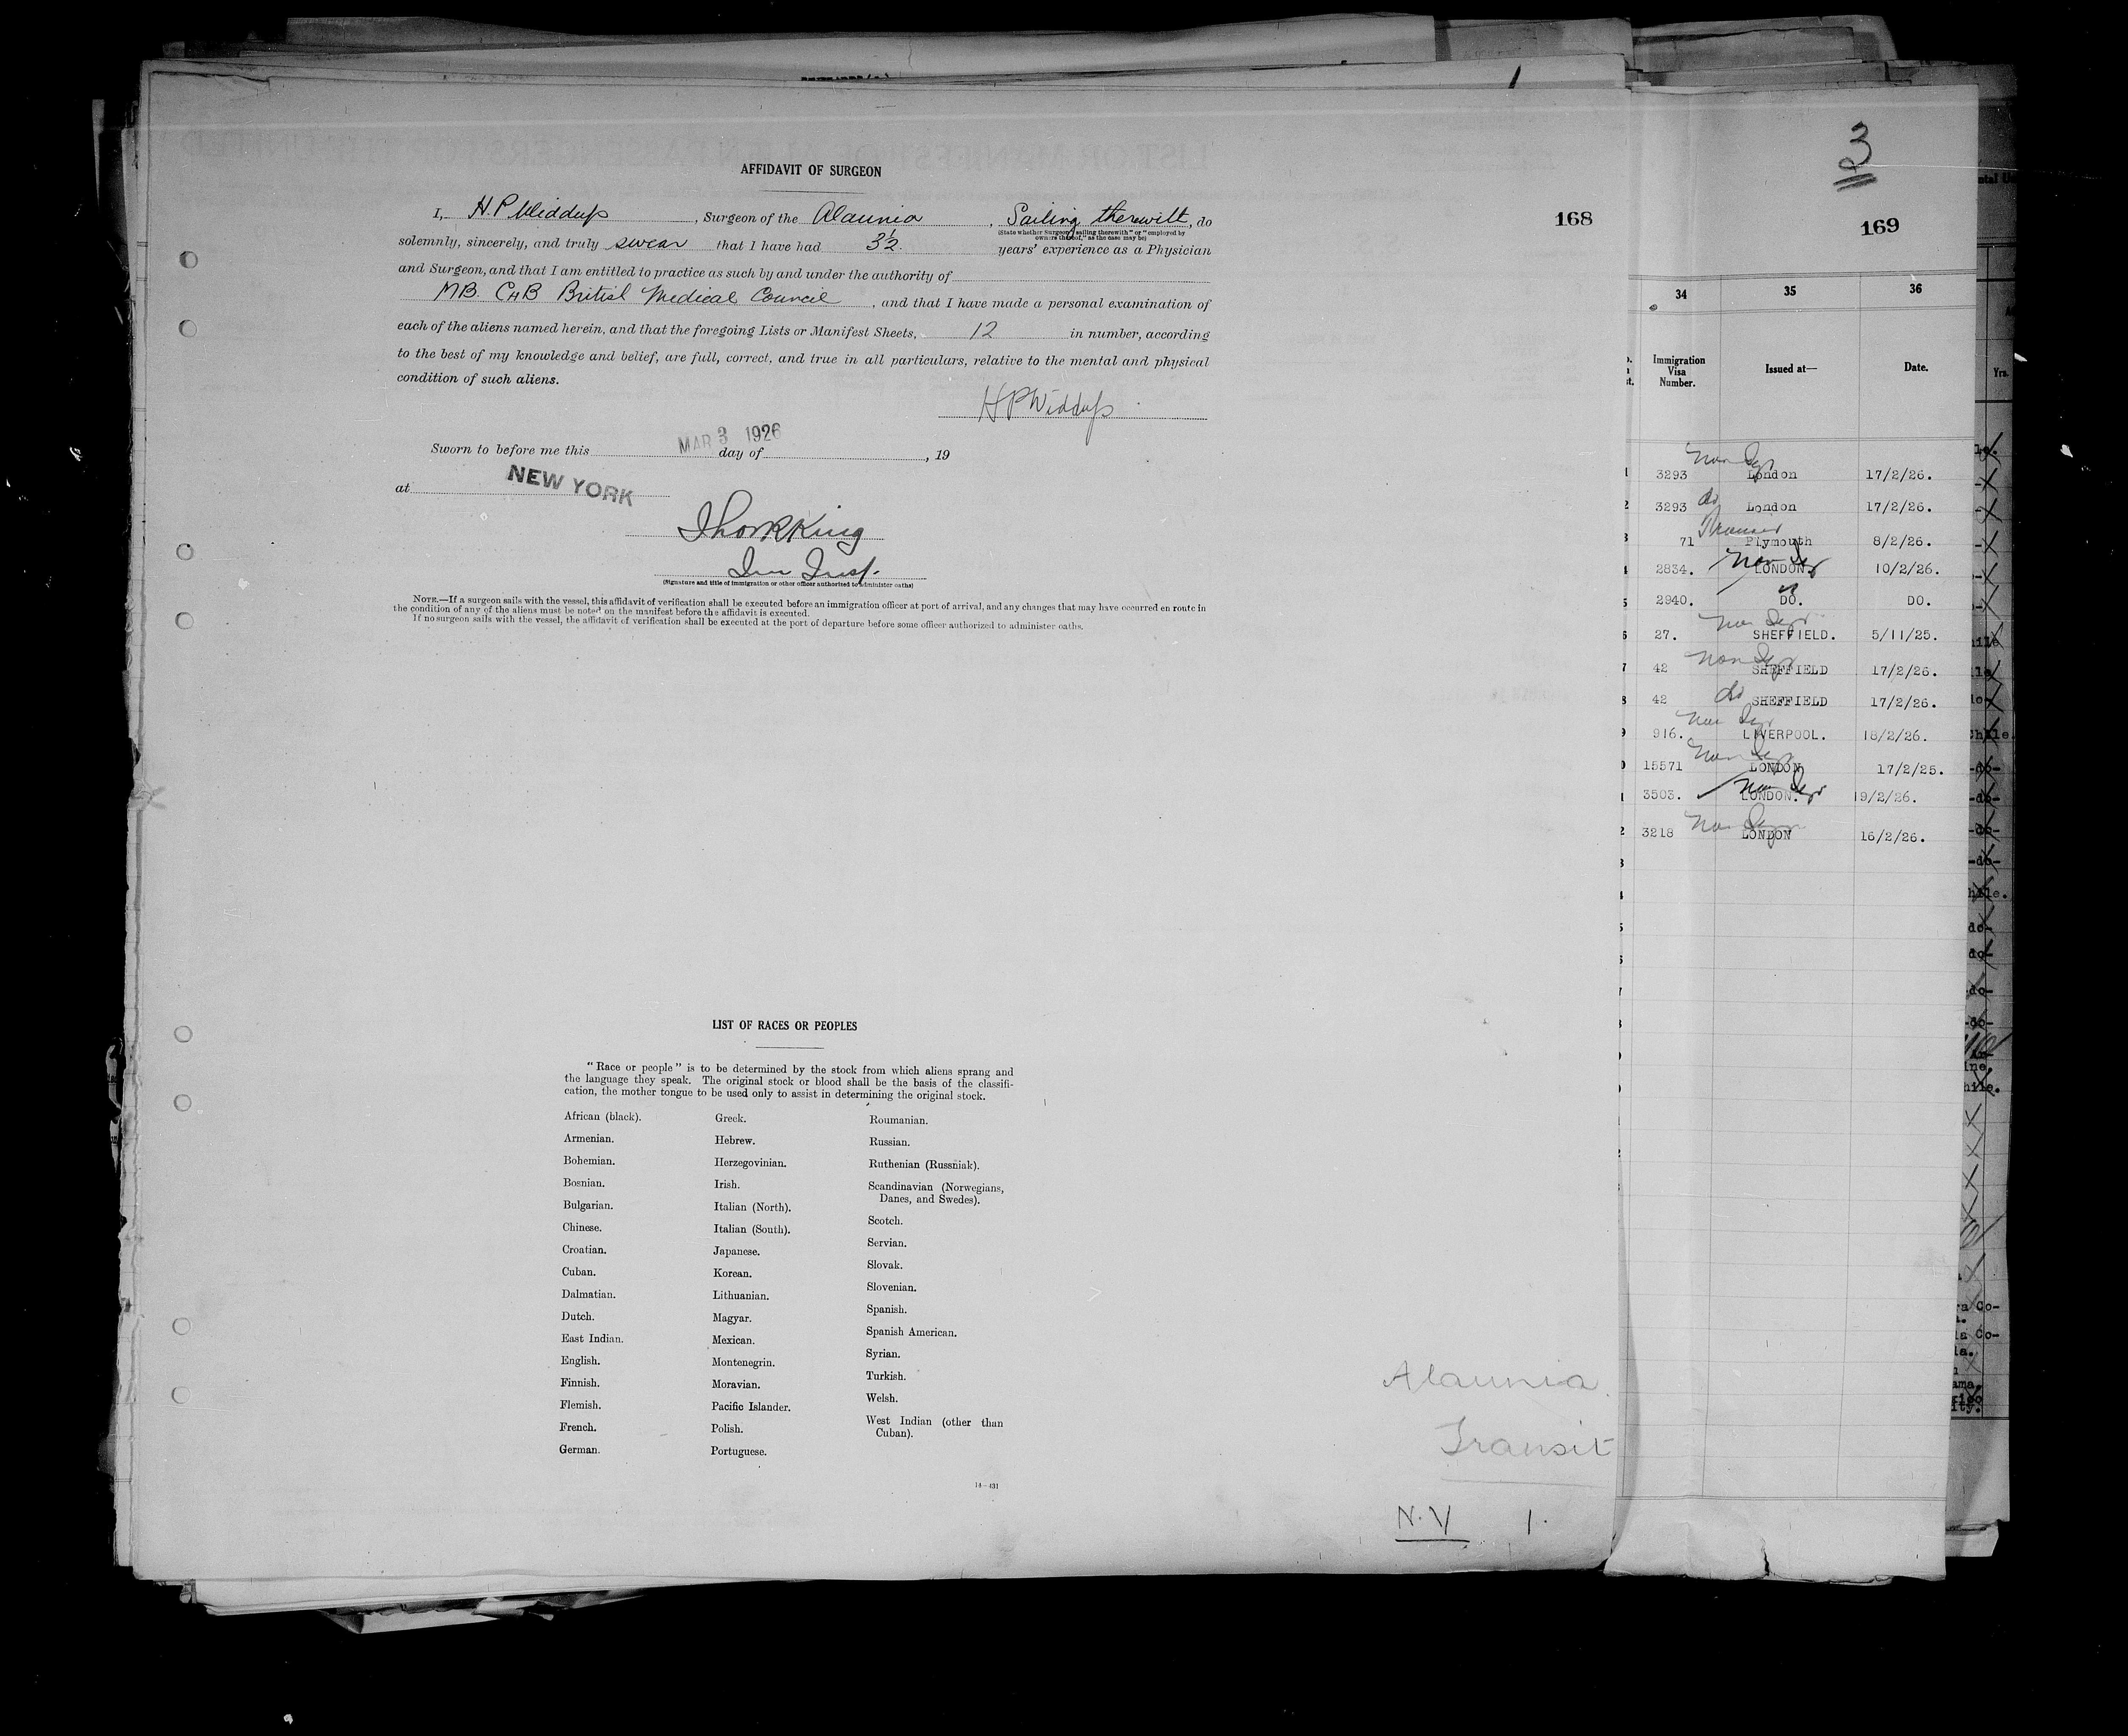 AFFIDAVIT OF SURGEON
I, H.P. Widdup, Surgeon of the Alaunia, Sailing therewith, do
(State whether Surgeon "sailing therewith" or "employed by owners thereof," as the case may be)
solemnly, sincerely, and truly swear that I have had 3½. years' experience as a Physician
and Surgeon, and that I am entitled to practice as such by and under the authority of
MB. CHB British Medical Council, and that I have made a personal examination of
each of the aliens named herein, and that the foregoing Lists or Manifest Sheets, 12 in number, according
to the best of my knowledge and belief, are full, correct, and true in all particulars, relative to the mental and physical
condition of such aliens.
HPWiddup
Sworn to before me this MAR 3 1926 day of , 19
at NEW YORK
King
Im Insp.
(Signature and title of immigration or other officer authorized to administer oaths)
NOTE.—If a surgeon sails with the vessel, this affidavit of verification shall be executed before an immigration officer at port of arrival, and any changes that may have occurred en route in
the condition of any of the aliens must be noted on the manifest before the affidavit is executed.
If no surgeon sails with the vessel, the affidavit of verification shall be executed at the port of departure before some officer authorized to administer oaths.
168
LIST OF RACES OR PEOPLES
"Race or people" is to be determined by the stock from which aliens sprang and
the language they speak. The original stock or blood shall be the basis of the classifi-
cation, the mother tongue to be used only to assist in determining the original stock.
African (black).
Armenian.
Bohemian.
Bosnian.
Bulgarian.
Chinese.
Croatian.
Cuban.
Dalmatian.
Dutch.
East Indian.
English.
Finnish.
Flemish.
French.
German.
Greek.
Hebrew.
Herzegovinian.
Irish.
Italian (North).
Italian (South).
Japanese.
Korean.
Lithuanian.
Magyar.
Mexican.
Montenegrin.
Moravian.
Pacific Islander.
Polish.
Portuguese.
Roumanian.
Russian.
Ruthenian (Russniak).
Scandinavian (Norwegians,
Danes, and Swedes).
Scotch.
Servian.
Slovak.
Slovenian.
Spanish.
Spanish American.
Syrian.
Turkish.
Welsh.
West Indian (other than
Cuban).
14—431
Alaunia.
Transit
N.V 1.
3
169
34 35 36
Immigration Visa Number. Issued at— Date.
3293 London 17/2/26.
3293 do London 17/2/26.
71 Plymouth 8/2/26.
2834. LONDON 10/2/26.
2940. DO. DO.
27. SHEFFIELD. 5/11/25.
42 SHEFFIELD 17/2/26.
42 do SHEFFIELD 17/2/26.
916. LIVERPOOL. 18/2/26.
15571 LONDON 17/2/25.
3503. LONDON. 19/2/26.
3218 LONDON 16/2/26.
Yrs.